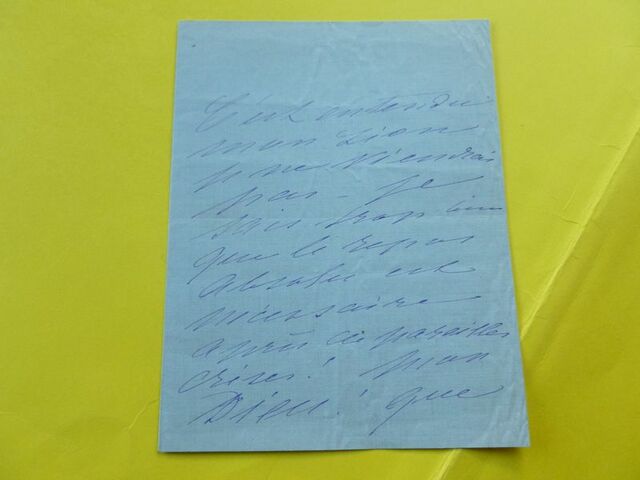 C'est entendu
mon Lion
je ne viendrai
pas - je
sais trop bien
que le repos
absolu est
nécessaire
après de pareilles
crises! mon
Dieu! que